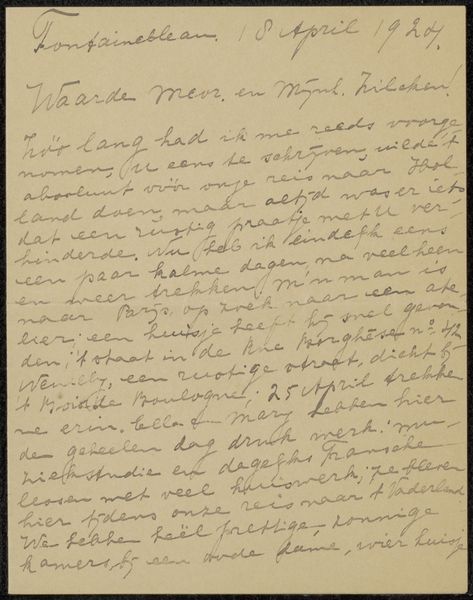 Fontainebleau. 18 April 1924.
Waarde Mevr. en Mijnh. Zilcken!
Zóó lang had ik me reeds voorge
nomen, U eens te schrijven, wilde 't
absoluut vóór onze reis naar Hol
land doen, maar altijd was er iets
dat een rustig praatje met U ver-
hinderde. Nu heb ik eindelijk eens
een paar kalme dagen, na veel heen
en weer trekken. M'n man is
naar Parijs, op zoek naar een ate
lier; een huisje heeft hij snel gevon
den; 't staat in de Rue Borghèse no.
Neuilly, een rustige straat, dicht bij
't Bois de Boulogne; 25 April trekken
we erin. Ella & Mary hebben hier
de geheelen dag druk werk: mu-
ziekstudie en dagelijks Fransche
lessen met veel huiswerk; ze bleven
hier tijdens onze reis naar 't Vaderland.
We hebben heel prettige zonnige
kamers, bij een oude dame, wier huisje